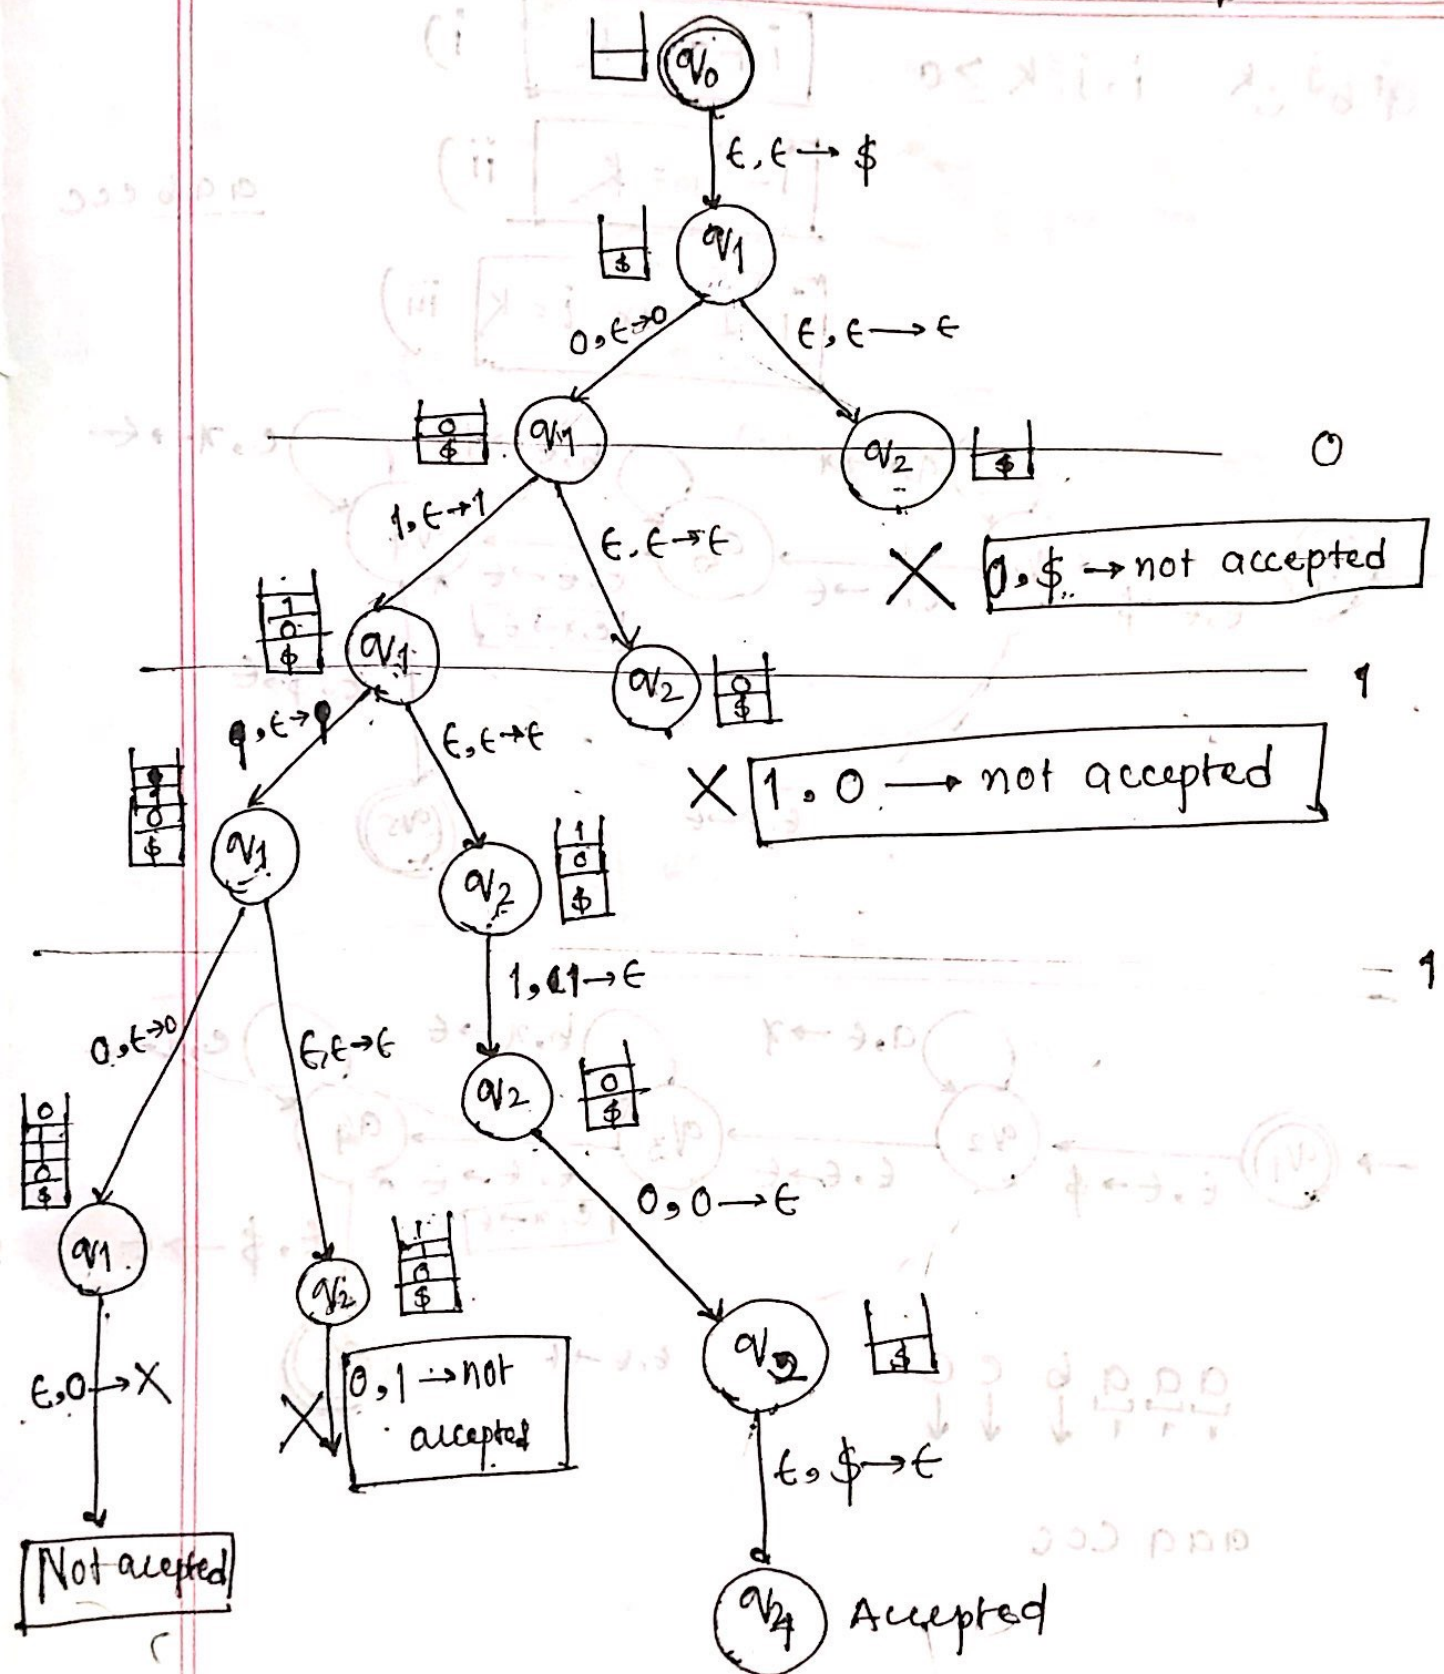 q0
ϵ, ϵ → $
$
q1
0, ϵ→0
ϵ, ϵ → ϵ
0
$
q1
q2
$
0
1, ϵ→1
ϵ, ϵ→ϵ
0, $ → not accepted
1
0
$
q1
q2
0
$
1
ϵ→
ϵ, ϵ→ϵ
1, 0 → not accepted
0
$
q1
q2
1
0
$
1
1, 1→ϵ
0, ϵ→0
ϵ, ϵ→ϵ
q2
0
$
0
1
1
0
$
0, 0 → ϵ
q1
q2
1
1
0
$
q2
$
ϵ, 0 → X
0, 1 → not
accepted
ϵ, $ → ϵ
Not acepted
Accepted